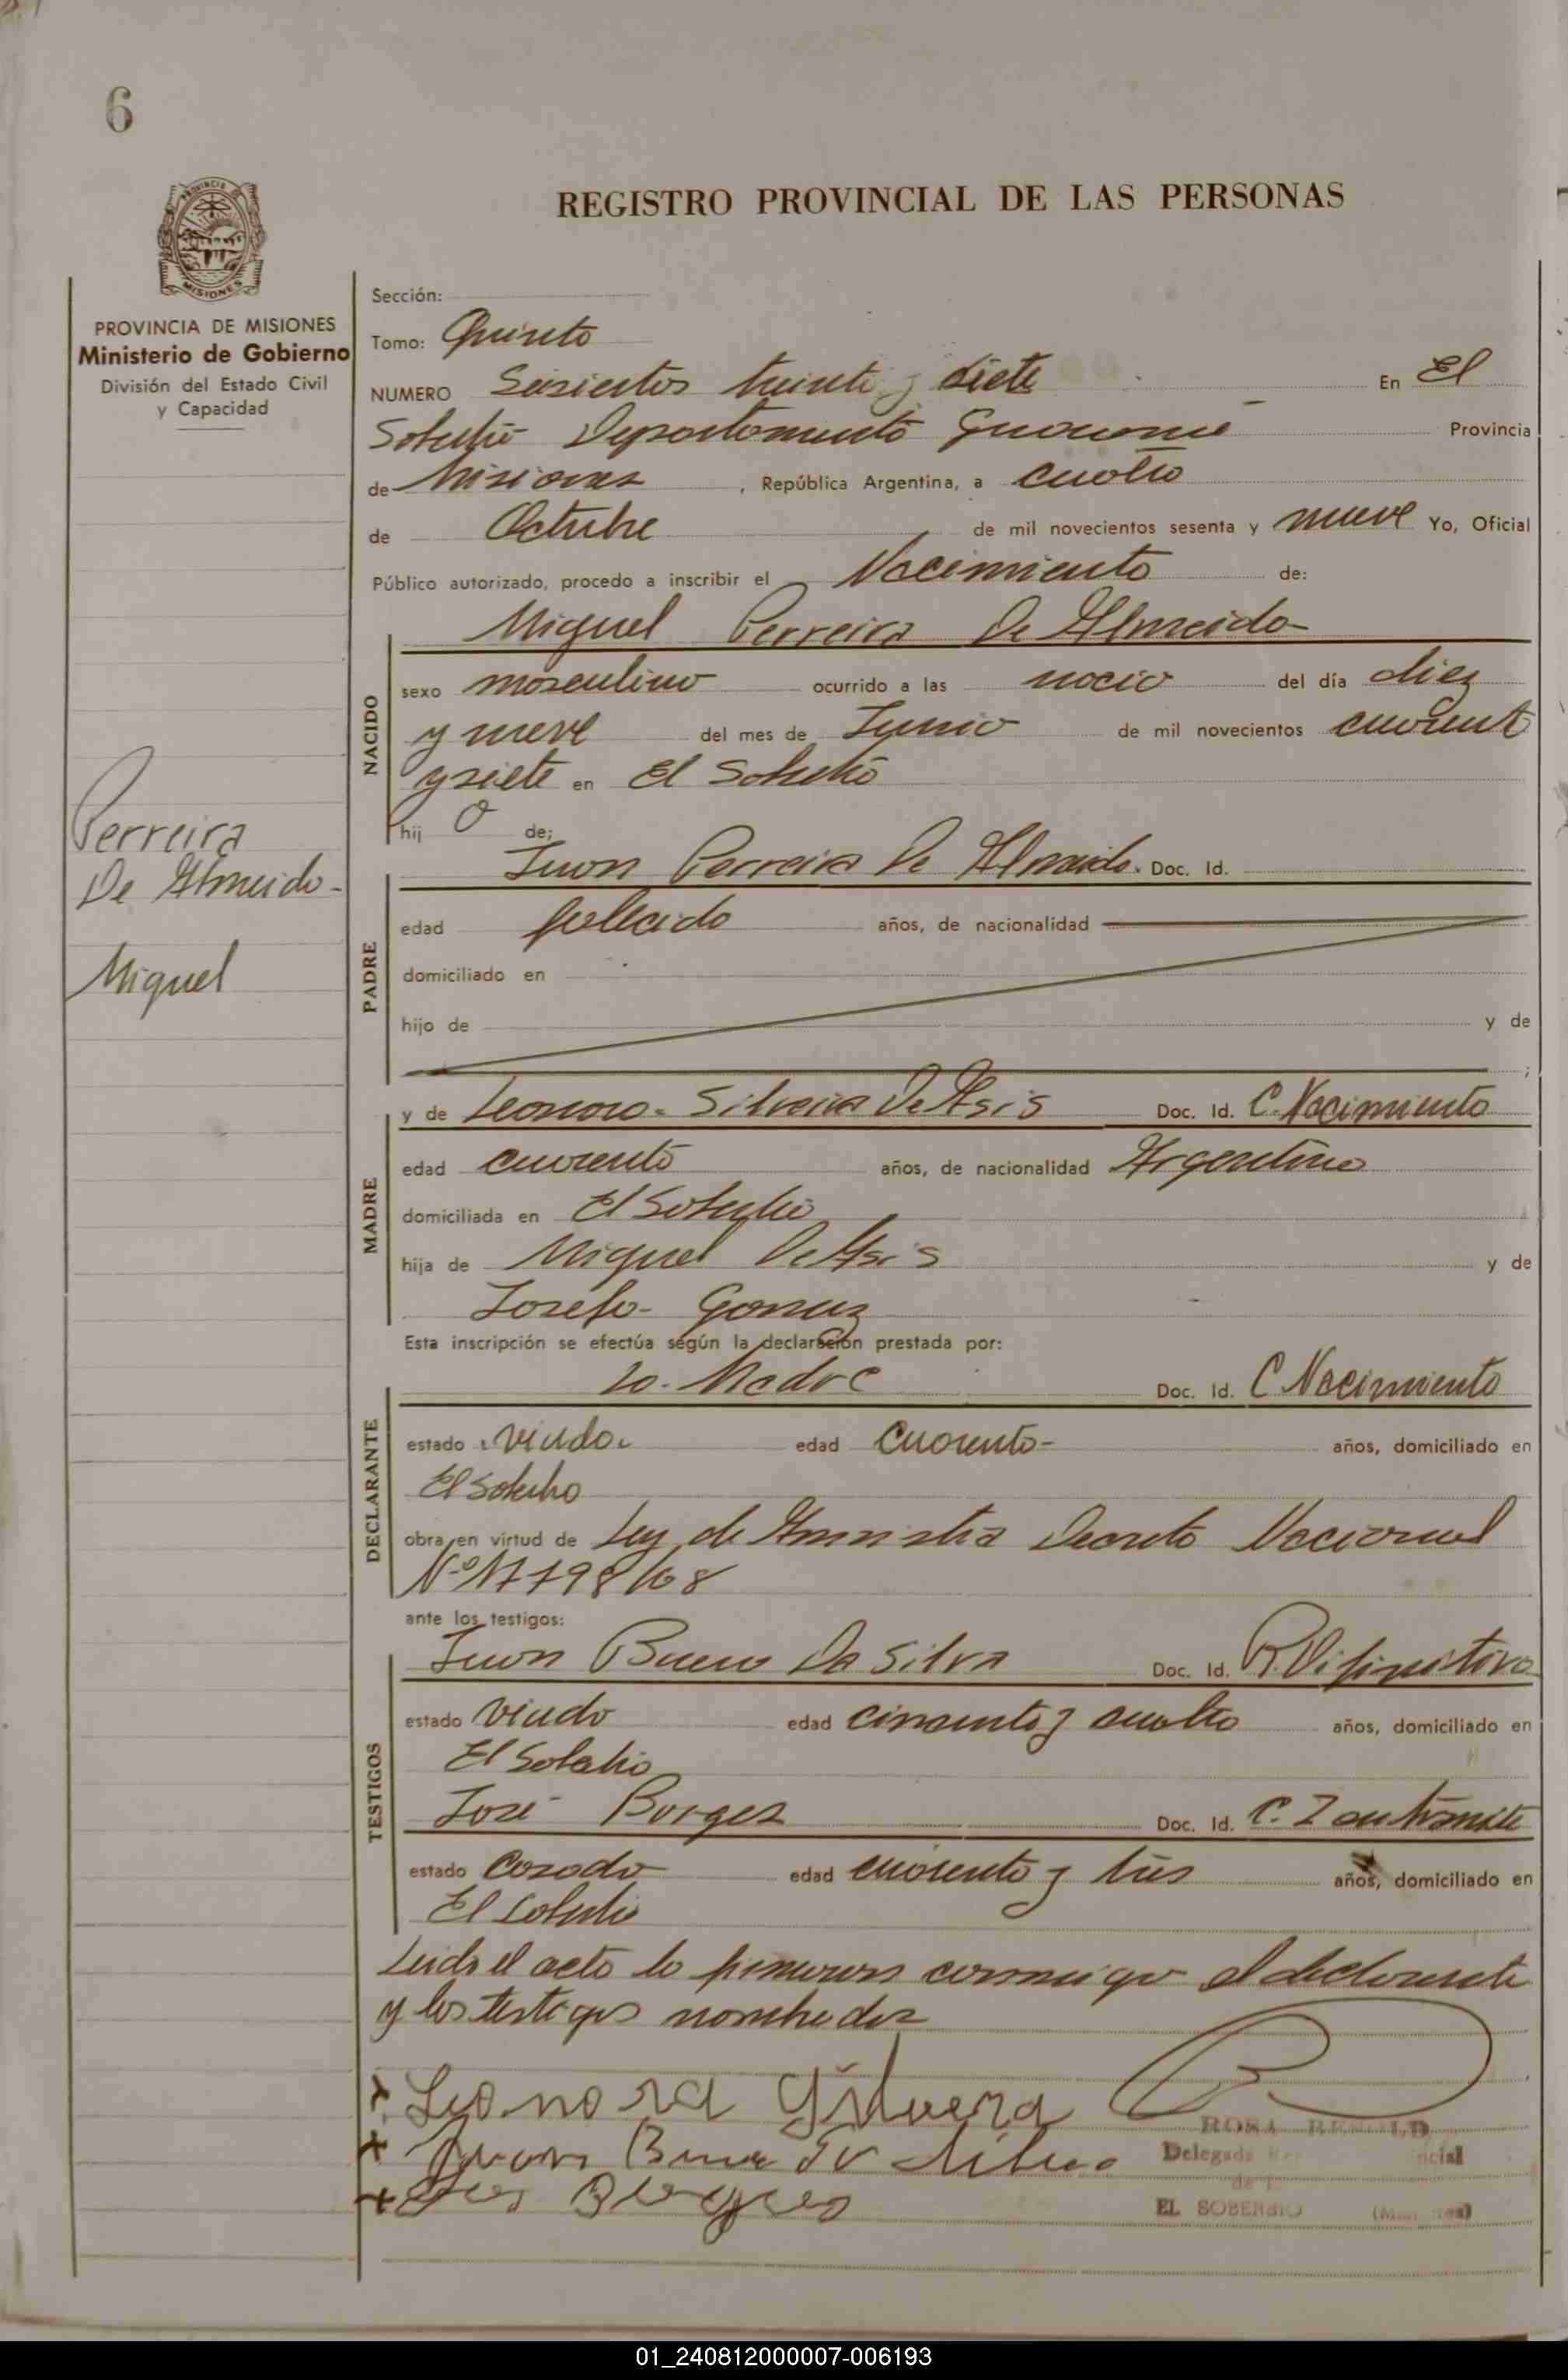 6
PROVINCIA DE MISIONES
MISIONES
PROVINCIA DE MISIONES
Ministerio de Gobierno
División del Estado Civil
y Capacidad
Perreira
De Almeida
Miguel
REGISTRO PROVINCIAL DE LAS PERSONAS
Sección:
Tomo: Quinto
NUMERO Seisientos treinta y siete En El
Soberbio Departamento Guarani Provincia
de Misiones, República Argentina, a cuatro
de Octubre de mil novecientos sesenta y nueve Yo, Oficial
Público autorizado, procedo a inscribir el Nacimiento de:
NACIDO
Miguel Perreira De Almeida
sexo masculino ocurrido a las nació del día diez
y nueve del mes de Junio de mil novecientos cuarenta
y siete en El Soberbio
hij o de;
PADRE
Juan Perreira De Almeida. Doc. Id.
edad fallecido años, de nacionalidad
domiciliado en
hijo de y de
;
MADRE
y de Leonora Silveira De Asis Doc. Id. C. Nacimiento
edad cuarenta años, de nacionalidad Argentina
domiciliada en El Soberbio
hija de Miguel De Asis y de
Josefa Gomez
Esta inscripción se efectúa según la declaración prestada por:
DECLARANTE
La Madre Doc. Id. C Nacimiento
estado viuda edad cuarenta años, domiciliado en
El Soberbio
obra en virtud de Ley de Amnistia Decreto Nacional
Nº 17798/68
ante los testigos:
TESTIGOS
Juan Bueno Da Silva Doc. Id. R. Difinitiva
estado viudo edad cincuenta y cuatro años, domiciliado en
El Soberbio
José Borges Doc. Id. C. I en trámite
estado casado edad cuarenta y tres años, domiciliado en
El Soberbio
Leida el acta la firmaron conmigo el declarante
y los testigos nombrados
x Leonora Silveira
x Juan Bueno Da Silva
x Borges
ROSA
Delegada
EL SOBERBIO (Misiones)
01_240812000007-006193